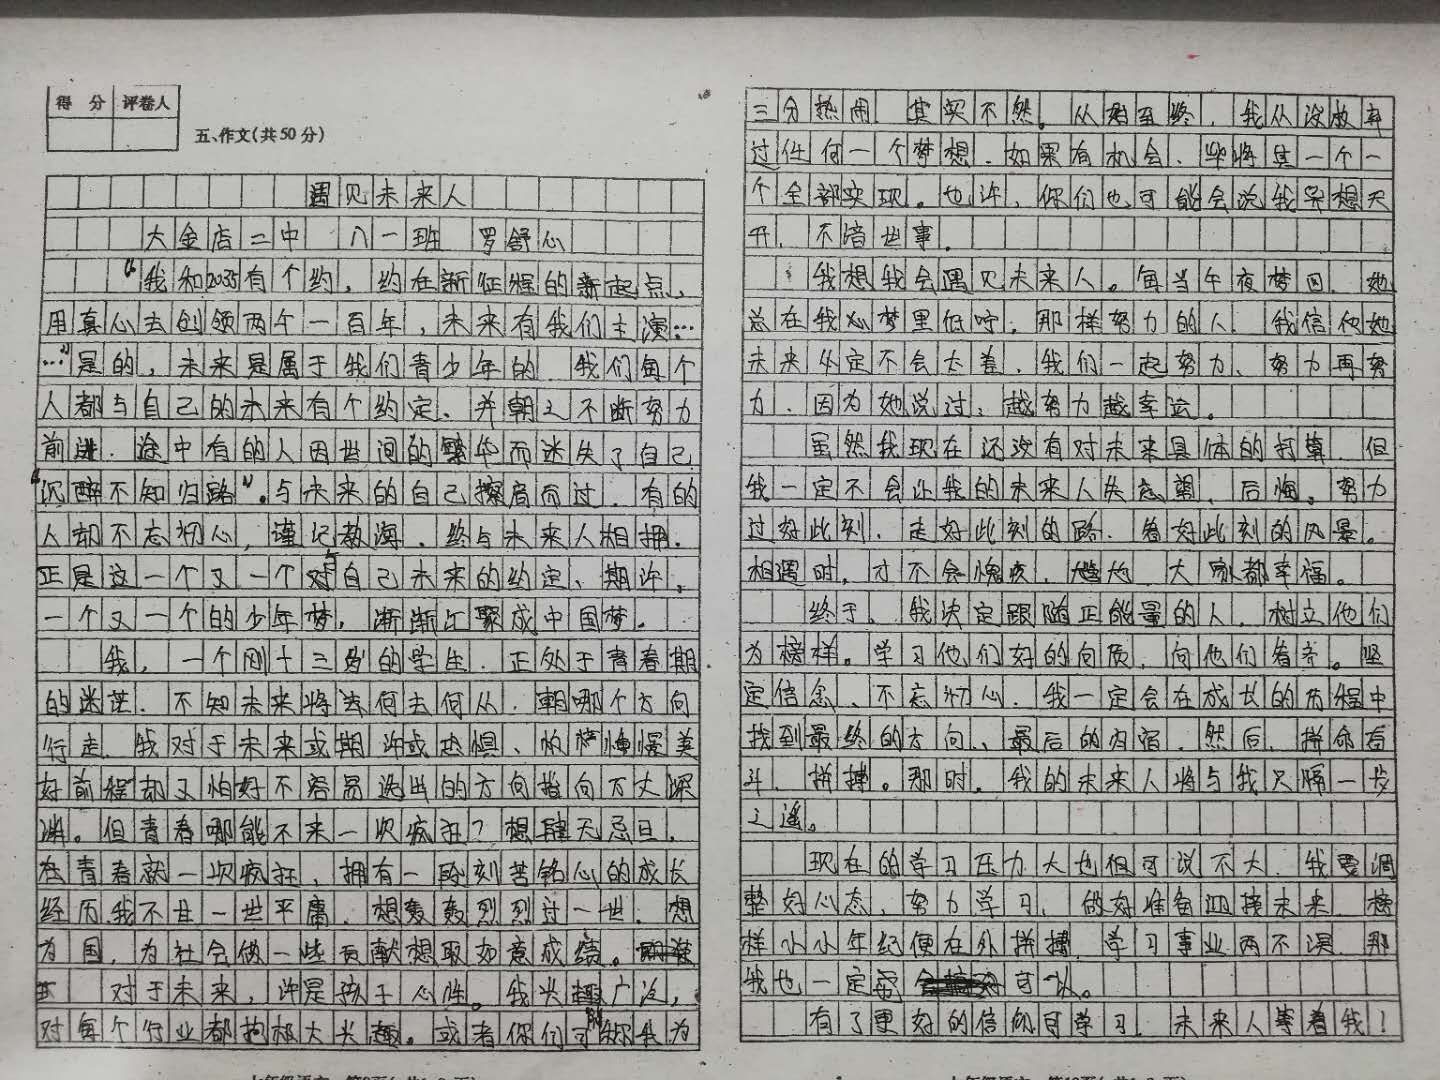 得 分 评卷人
五、作文(共50分)
遇见未来人
大金店二中 八一班 罗舒心
“我和2035有个约，约在新征程的新起点，
用真心去创领两个一百年，未来有我们主演…
…”是的，未来是属于我们青少年的，我们每个
人都与自己的未来有个约定、并朝之不断努力
前进，途中有的人因世间的繁华而迷失了自己
“沉醉不知归路”。与未来的自己擦肩而过，有的
人却不忘初心，谨记教诲，终与未来人相拥。
正是这一个又一个对自己未来的约定、期许，
一个又一个的少年梦，渐渐汇聚成中国梦。
我，一个刚十三岁的学生，正处于青春期
的迷茫、不知未来将该何去何从，朝哪个方向
行走，我对于未来或期许或恐惧、怕 憧憬美
好前程却又怕好不容易选出的方向指向万丈深
渊。但青春哪能不来一次疯狂？想肆无忌旦，
在青春就一次疯狂，拥有一段刻苦铭心的成长
经历,我不甘一世平庸，想轰轰烈烈过一世，想
为国，为社会做一些贡献想取如意成绩。
对于未来，许是孩子心性。我兴趣广泛，
对每个行业都抱极大兴趣。或者你们可能称我为
三分热闹，其实不然。从始至终，我从没放弃
过任何一个梦想，如果有机会，必将其一个一
个全部实现。也许，你们也可能会说我异想天
开，不谙世事。
我想我会遇见未来人。每当午夜梦回，她
总在我心梦里低吟，那样努力的人，我信他她
未来必定不会太差，我们一起努力、努力再努
力，因为她说过：越努力越幸运。
虽然我现在还没有对未来具体的打算，但
我一定不会让我的未来人失态望、后悔。努力
过好此刻，走好此刻的路，看好此刻的风景。
相遇时，才不会愧疚，尴尬，大家都幸福。
终于，我决定跟随正能量的人，树立他们
为榜样。学习他们好的向质，向他们看齐。坚
定信念、不忘初心，我一定会在成长的历程中
找到最终的方向、最后的内宿，然后，拼命奋
斗，拼搏。那时，我的未来人将与我只隔一步
之遥。
现在的学习压力大也但可说不大，我要调
整好心态，努力学习，做好准备迎接未来，榜
样小小年纪便在外拼搏，学习事业两不误，那
我也一定 可以。
有了更好的信仰可学习，未来人等着我！